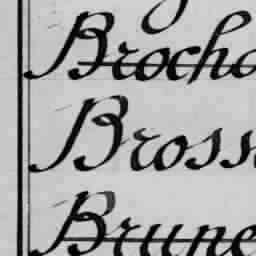 Broch
Bross
Brune